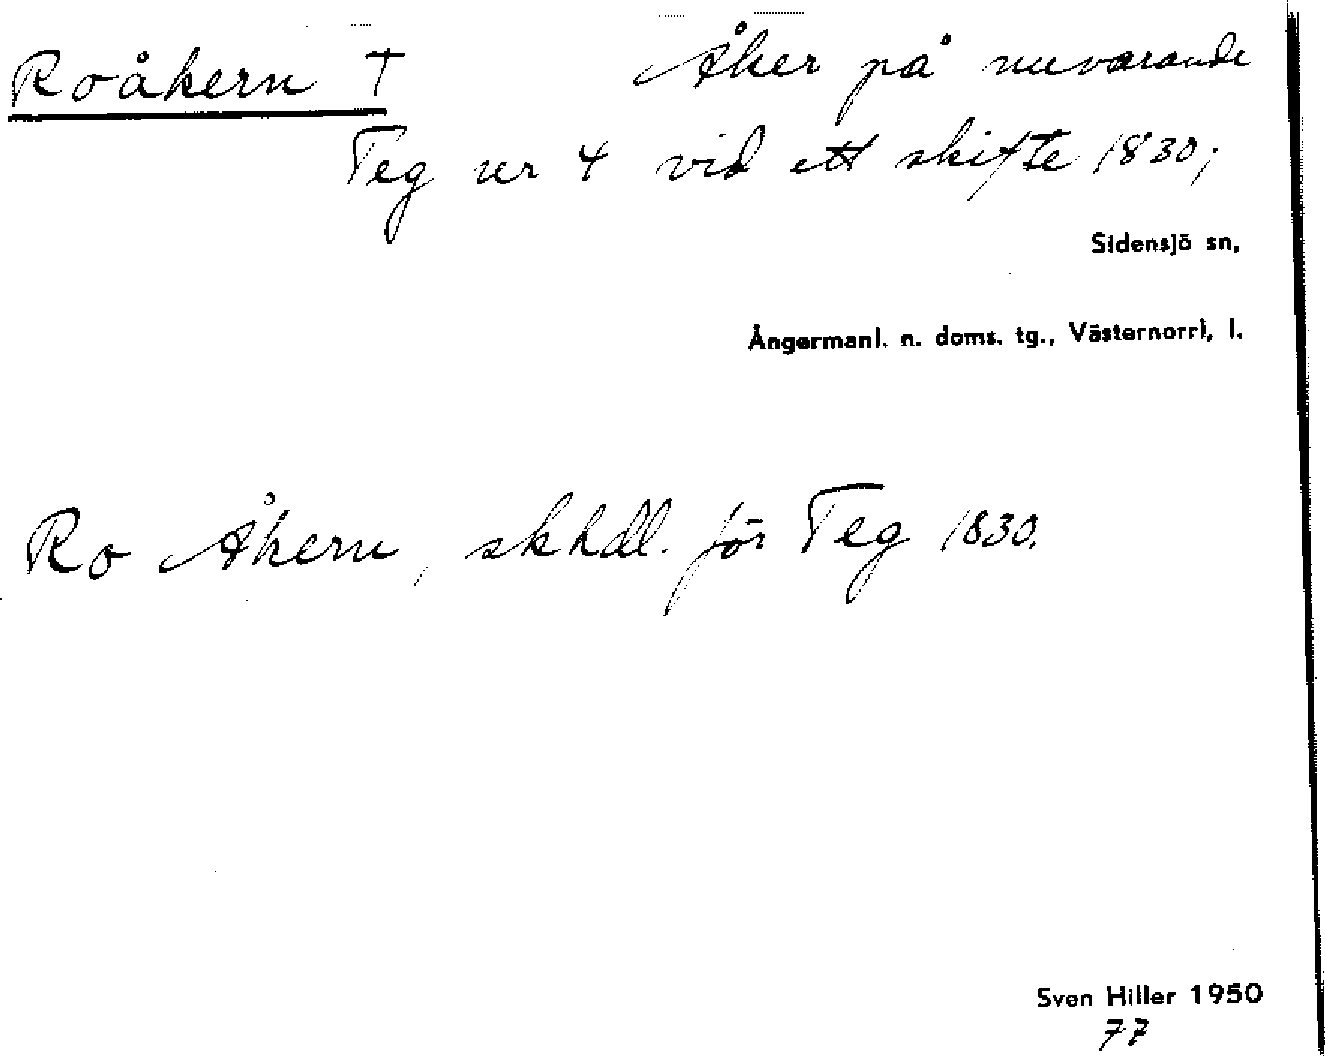 Roåkern † Åker på nuvarande
Teg nr 4 vid ett skifte 1830;
Sidensjö sn,
Ångermanl. n. doms. tg., Västernorrl, l.
Ro Åkern, skhdl. för Teg 1830.
Sven Hiller 1950
77